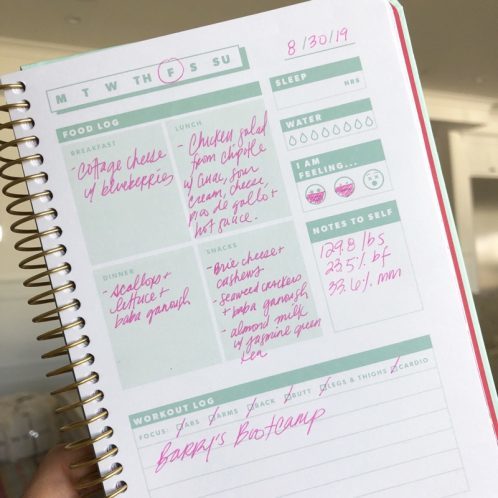 8/30/19
M T W TH F S SU
SLEEP
HRS
FOOD LOG
BREAKFAST
- Cottage cheese
w/ blueberries
LUNCH
- Chicken salad
from chipotle
w/ guac, sour
cream, cheese,
pico de gallo +
hot sauce.
WATER
I AM
FEELING...
DINNER
- scallops +
lettuce +
baba ganoush
SNACKS
- Brie cheese +
cashews
- seaweed crackers
+ baba ganoush
- almond milk
w/ jasmine green
tea
NOTES TO SELF
129.8 lbs
23.5% bf
33.6% mm
WORKOUT LOG
FOCUS: ABS ARMS BACK BUTT LEGS & THIGHS CARDIO
BARRY'S BOOTCAMP